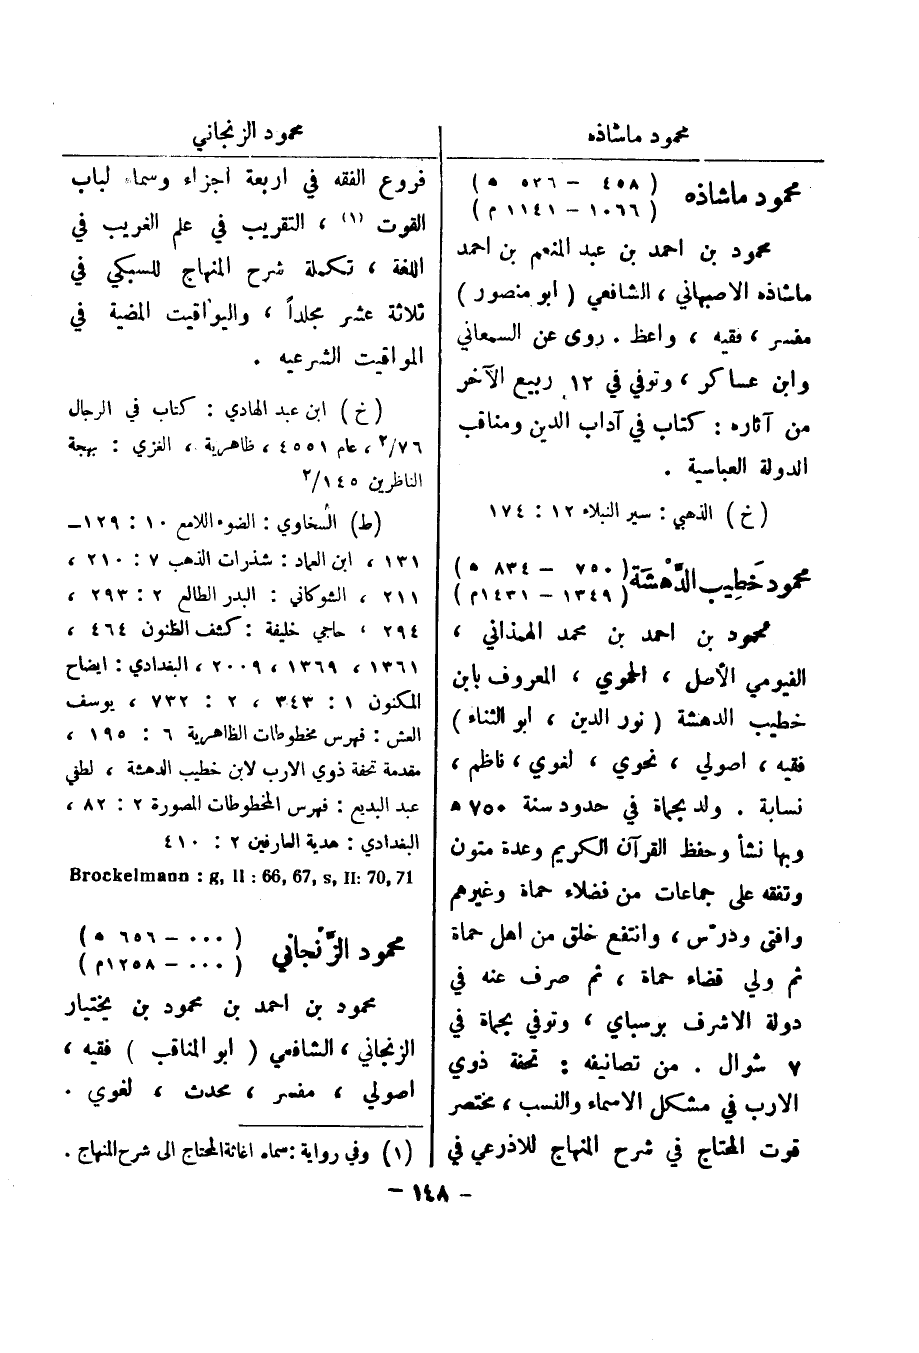 محمود ماشاذه
محمود ماشاذه ( ٤٥٨ – ٥٣٦ ه )
( ١٠٦٦ – ١١٤١ م )
محمود بن احمد بن عبد المنعم بن احمد
ماشاذه الاصبهاني ، الشافعي ( ابو منصور )
مفسر ، فقيه ، واعظ . روى عن السمعاني
وابن عساكر ، وتوفي في ١٢ ربيع الآخر
من آثاره : كتاب في آداب الدين ومناقب
الدولة العباسية .
( خ ) الذهبي : سير النبلاء ١٢ : ١٧٤
محمود خَطِيب الدَّهْشَة ( ٧٥٠ – ٨٣٤ ه )
( ١٣٤٩ – ١٤٣١ م )
محمود بن احمد بن محمد الهمذاني ،
الفيومي الأصل ، الحموي ، المعروف بابن
خطيب الدهشة ( نور الدين ، ابو الثناء )
فقيه ، اصولي ، نحوي ، لغوي ، ناظم ،
نسابة . ولد بحماة في حدود سنة ٧٥٠ ه
وبها نشأ وحفظ القرآن الكريم وعدة متون
وتفقه على جماعات من فضلاء حماة وغيرهم
وافتى ودرّس ، وانتفع خلق من اهل حماة
ثم ولي قضاء حماة ، ثم صرف عنه في
دولة الاشرف برسباي ، وتوفي بحماة في
٧ شوال . من تصانيفه : تحفة ذوي
الارب في مشكل الاسماء والنسب ، مختصر
قوت المحتاج في شرح المنهاج للاذرعي في
محمود الزنجاني
فروع الفقه في اربعة اجزاء وسماه لباب
القوت (١) ، التقريب في علم الغريب في
اللغة ، تكملة شرح المنهاج للسبكي في
ثلاثة عشر مجلداً ، واليواقيت المضية في
المواقيت الشرعيه .
( خ ) ابن عبد الهادي : كتاب في الرجال
٢/٧٦ ، عام ٤٥٥١ ، ظاهرية ، الغزي : بهجة
الناظرين ٢/١٤٥
(ط) السخاوي : الضوء اللامع ١٠ : ١٢٩–
١٣١ ، ابن العماد : شذرات الذهب ٧ : ٢١٠ ،
٢١١ ، الشوكاني : البدر الطالع ٢ : ٢٩٣ ،
٢٩٤ ، حاجي خليفة : كشف الظنون ٤٦٤ ،
١٣٦١ ، ١٣٦٩ ، ٢٠٠٩ ، البغدادي : ايضاح
المكنون ١ : ٣٤٣ ، ٢ : ٧٣٢ ، يوسف
العش : فهرس مخطوطات الظاهرية ٦ : ١٩٥ ،
مقدمة تحفة ذوي الارب لابن خطيب الدهشة ، لطفي
عبد البديع : فهرس المخطوطات المصورة ٢ : ٨٢ ،
البغدادي : هدية العارفين ٢ : ٤١٠
Brockelmann : g, II : 66, 67, s, II: 70, 71
محمود الزَّنْجاني ( ٠٠٠ – ٦٥٦ ه )
( ٠٠٠ – ١٢٥٨ م )
محمود بن احمد بن محمود بن بختيار
الزنجاني ، الشافعي ( ابو المناقب ) فقيه ،
اصولي ، مفسر ، محدث ، لغوي .
(١) وفي رواية : سماه اغاثة المحتاج الى شرح المنهاج .
– ١٤٨ –